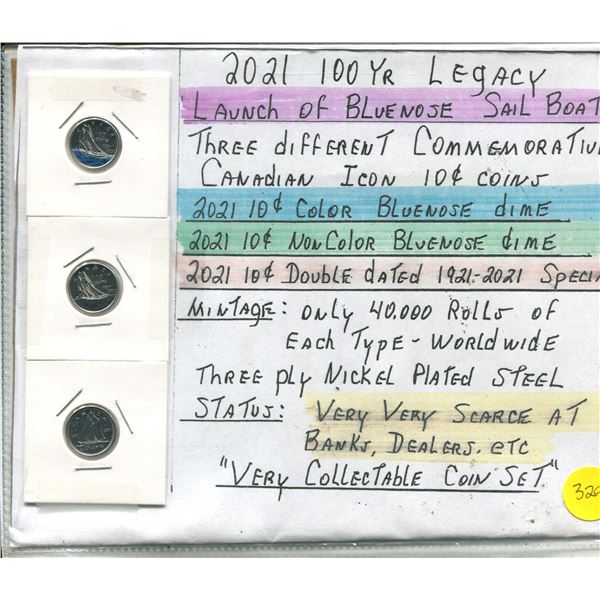 2021 100 YR LEGACY
LAUNCH OF BLUENOSE SAIL BOAT
THREE DIFFERENT COMMEMORATIV
CANADIAN ICON 10¢ COINS
2021 10¢ COLOR BLUENOSE DIME
2021 10¢ NON COLOR BLUENOSE DIME
2021 10¢ DOUBLE DATED 1921-2021 SPECIA
MINTAGE: ONLY 40,000 ROLLS OF
EACH TYPE - WORLDWIDE
THREE PLY NICKEL PLATED STEEL
STATUS: VERY VERY SCARCE AT
BANKS, DEALERS, ETC
"VERY COLLECTABLE COIN SET"